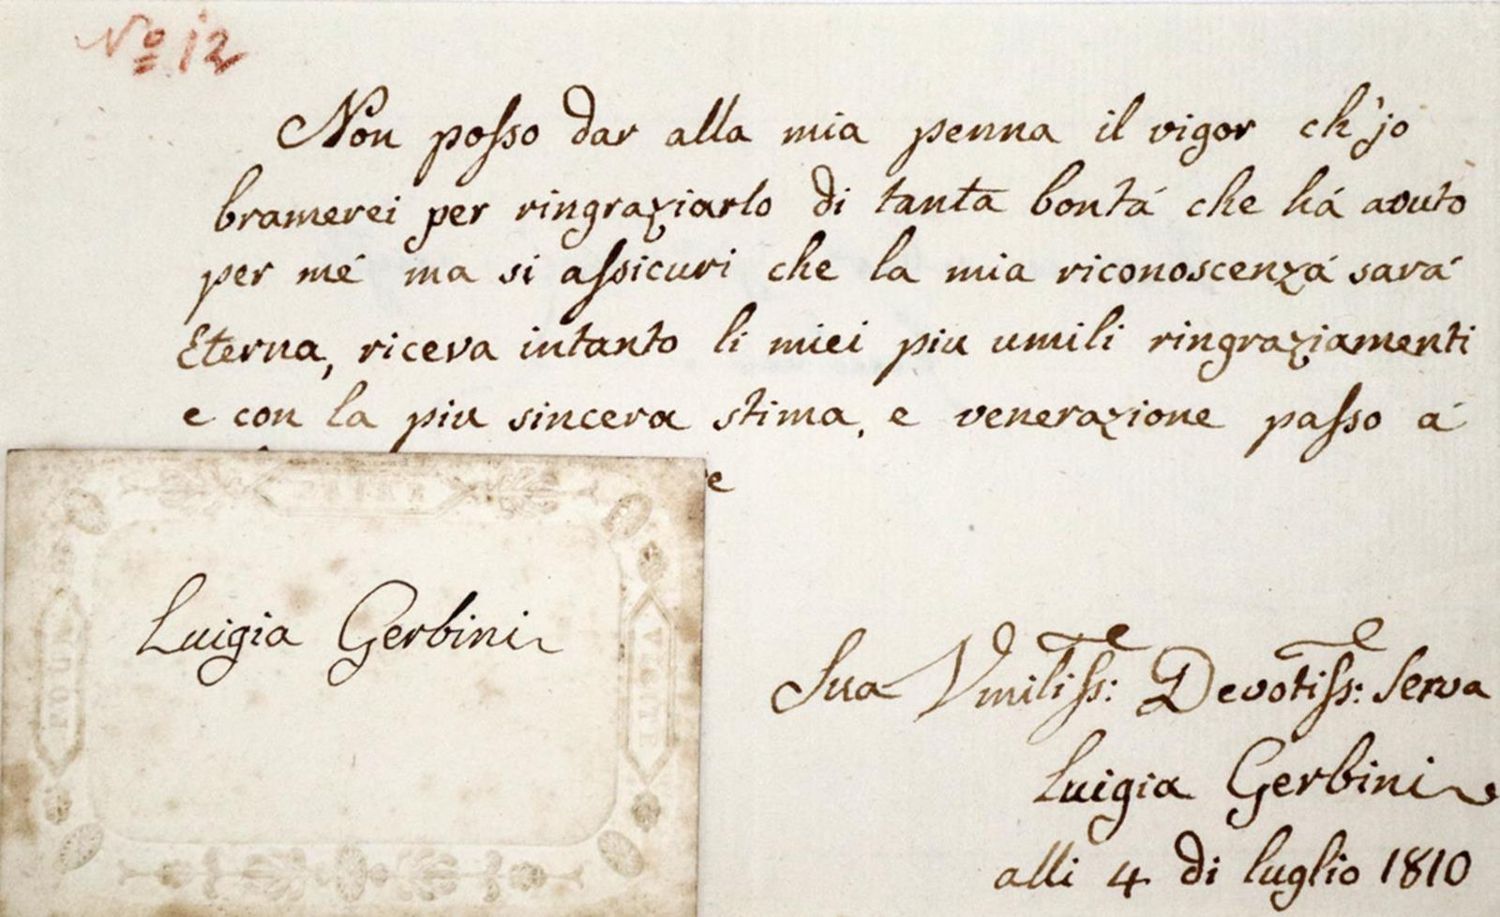 No 12
Non posso dar alla mia penna il vigor ch'jo
bramerei per ringraziarlo di tanta bontá che há avuto
per mé ma si assicuri che la mia riconoscenzá sará
Eterna, riceva intanto li miei piu umili ringraziamenti
e con la piu sincera stima, e venerazione passo á
Luigia Gerbini
VISITE
Sua Vmiliss: e Devotiss: e Serva
Luigia Gerbini
alli 4 di luglio 1810